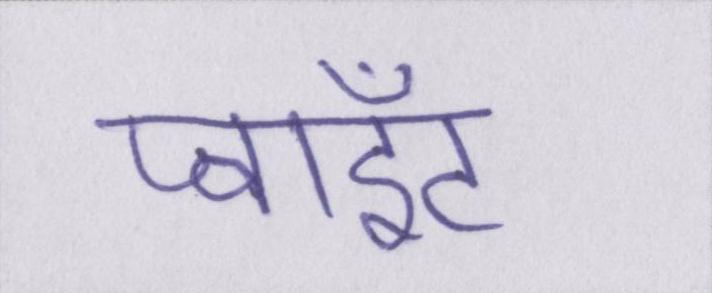 प्वाइँट